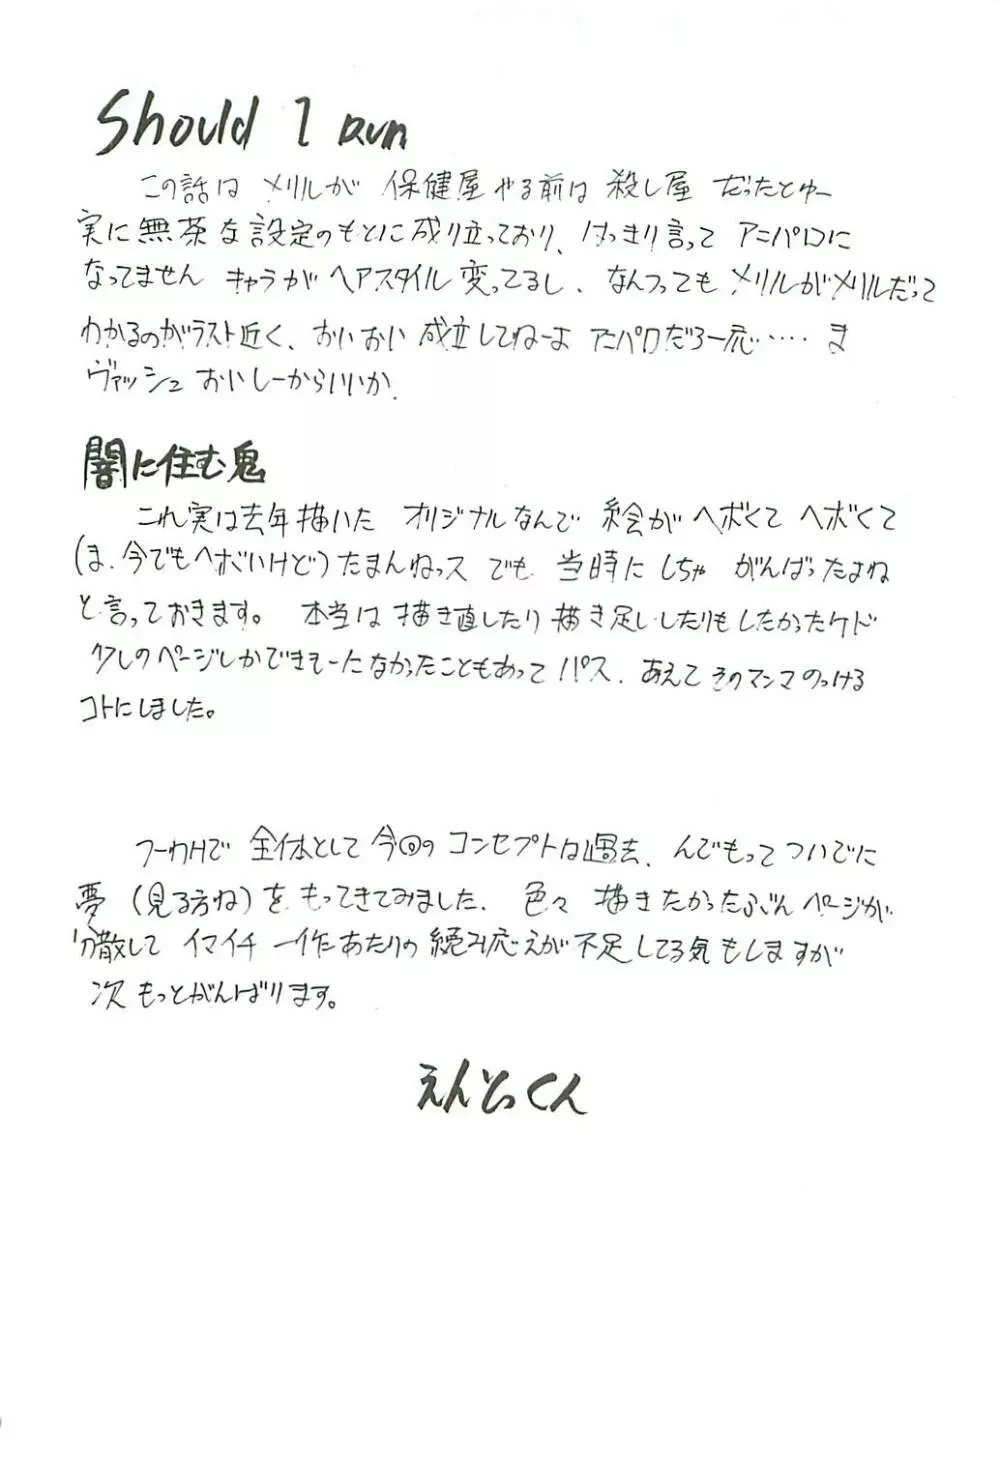 Should I Run
この話は メリルが 保健屋やる前は 殺し屋 だったとゆー
実に無茶な設定のもとに成り立っており、はっきり言って アニパロに
なってません キャラがヘアスタイル変ってるし、なんつってもメリルがメリルだって
わかるのがラスト近く、おいおい 成立してねーよ アニパロだろ一応・・・・・ ま
ヴァッシュ おいしーからいいか.
闇に住む鬼
これ実は去年描いた オリジナルなんで 絵がヘボくて ヘボくて
(ま.今でもヘボいけど)たまんねっス でも 当時にしちゃ がんばったよね
と言っておきます。 本当は 描き直したり描き足ししたりもしたかったケド
少しのページしかできそーになかったこともあって パス. あえてそのマンマのっける
コトにしました。
つーわけで 全体として今回のコンセプトは過去、んでもってついでに
夢(見る方ね)をもってきてみました. 色々 描きたかったぶんページが
分散して イマイチ 一作あたりの読み応えが不足してる気もしますが
次 もっとがんばります。
えんとっくん